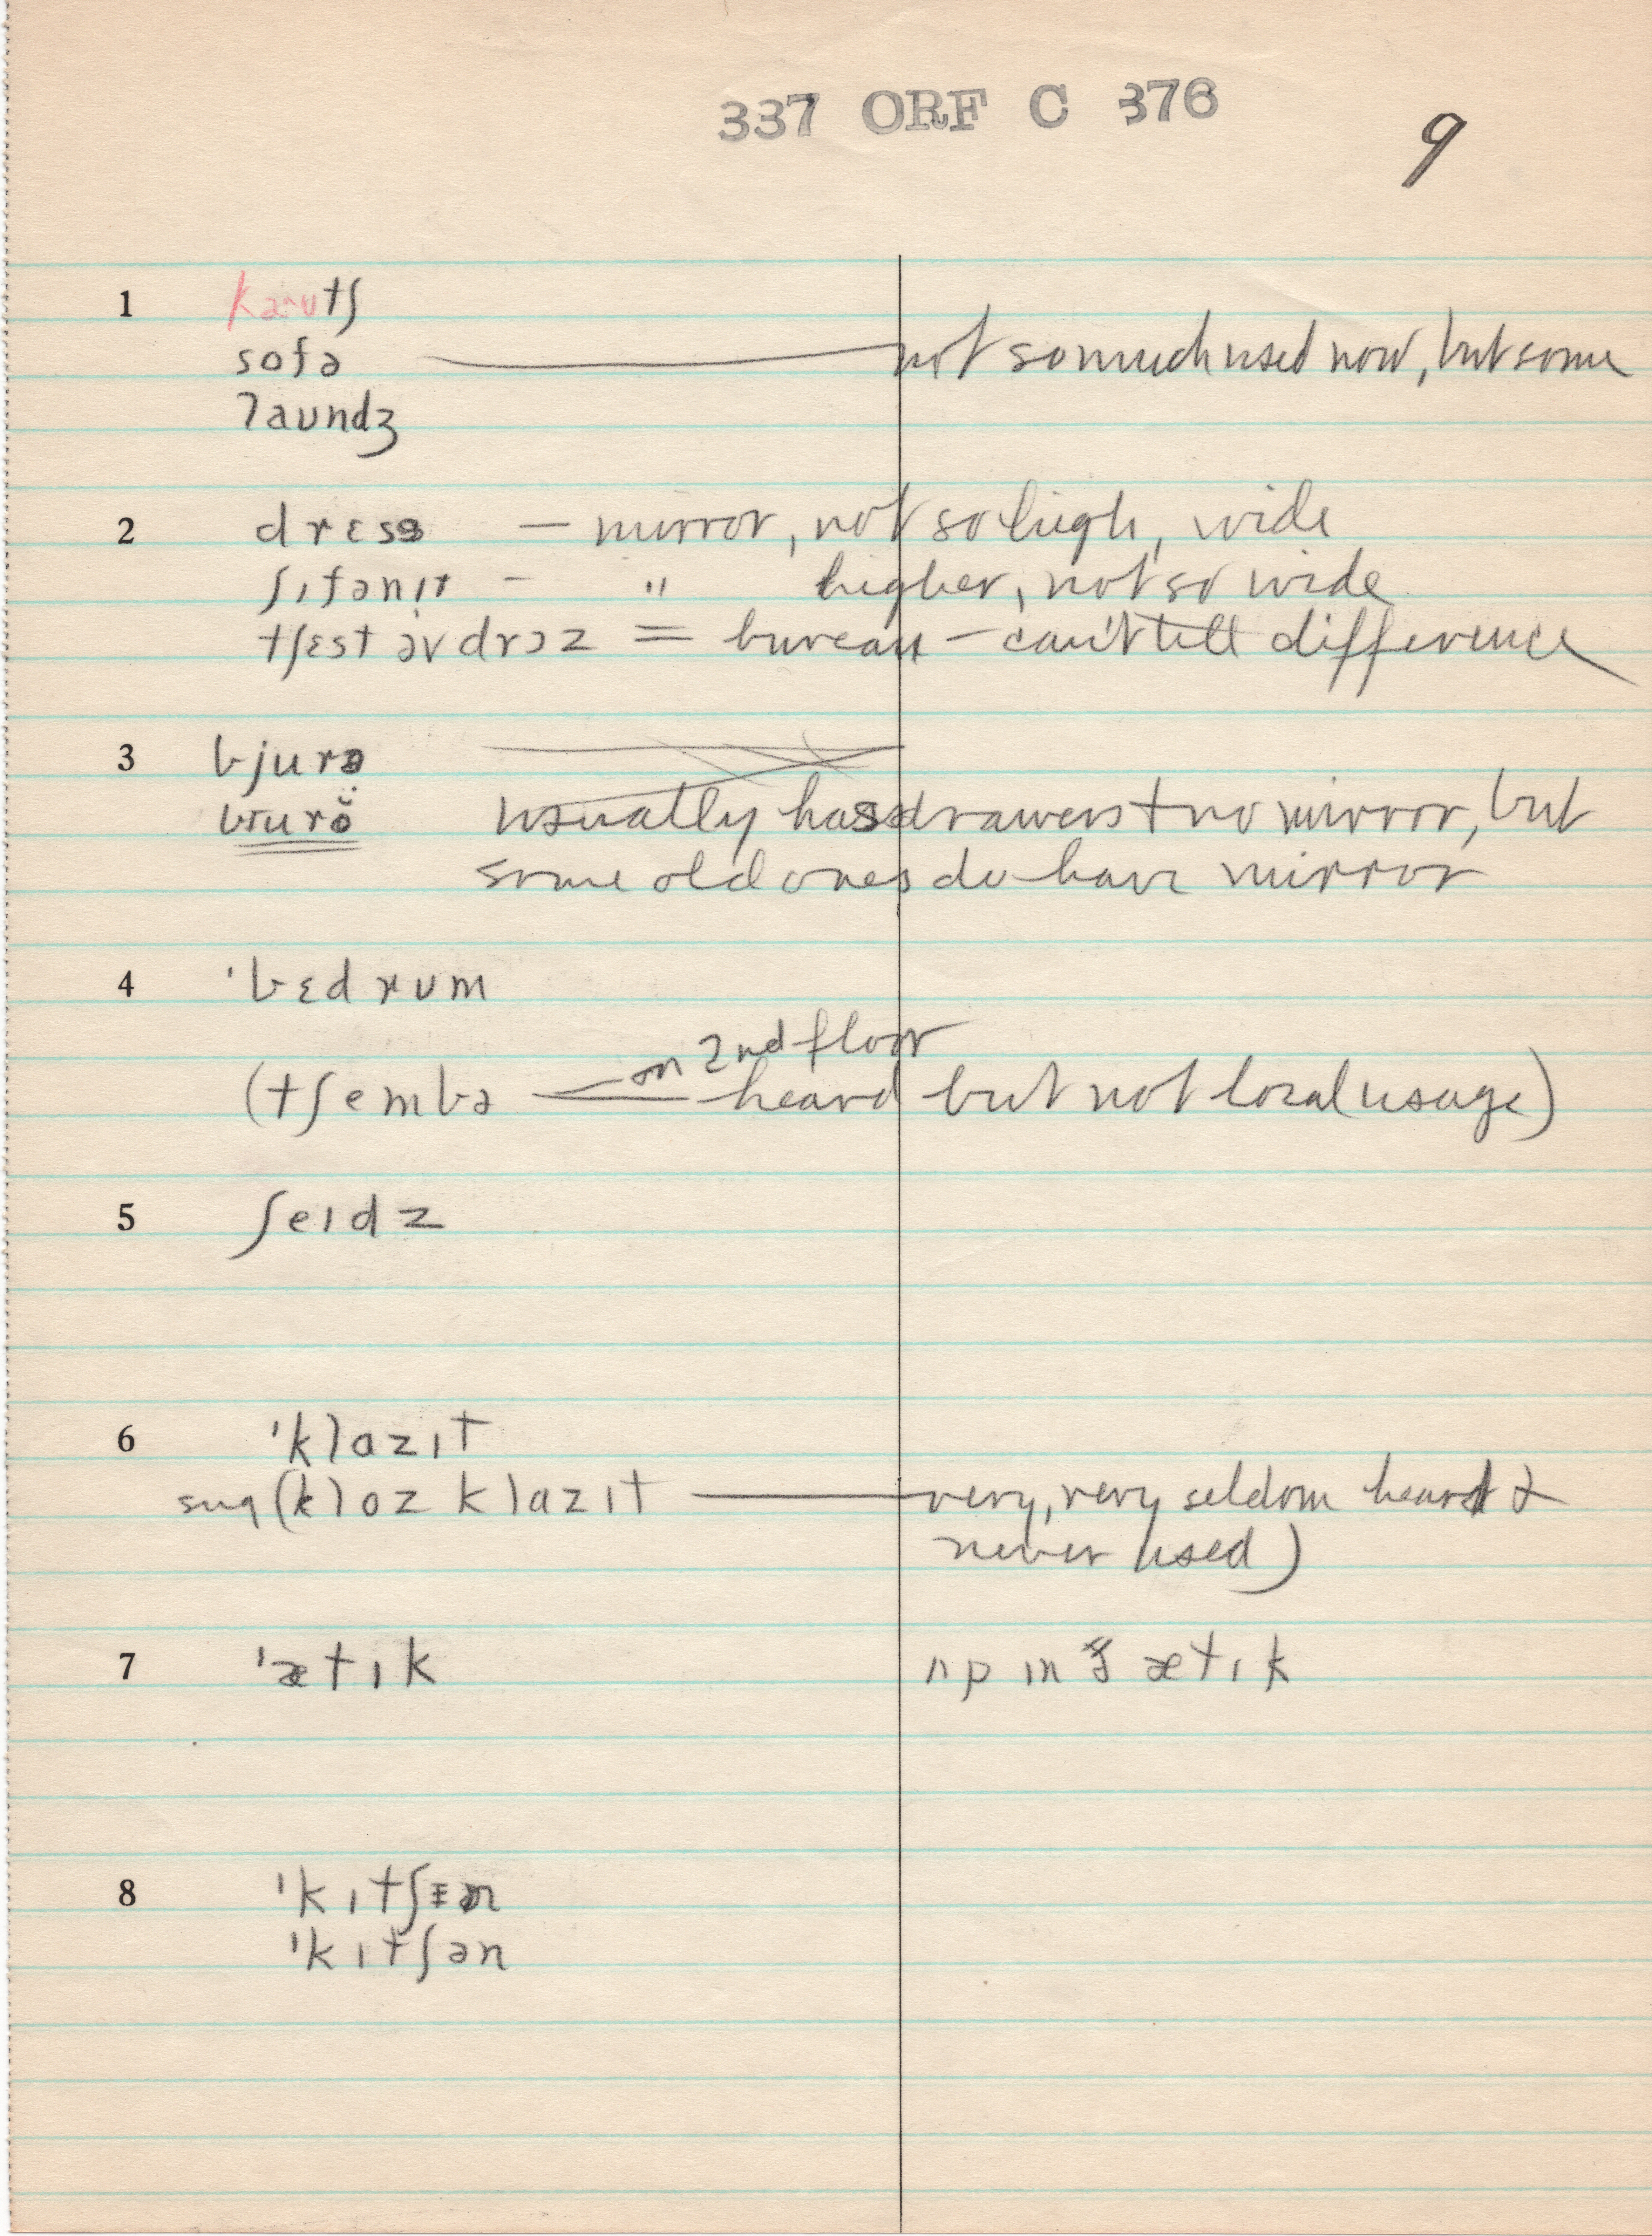 337 ORF C 376
9
1 kaʊtʃ
sofə — not so much used now, but some
laʊndʒ
2 drɛsə — mirror, not so high, wide
ʃɪfənɪr — " higher, not so wide
tʃɛst əv drɔz = bureau — can't tell difference
3 bjurə
usually has drawers + no mirror, but
some old ones do have mirror
4 ˈbɛdrʊm
on 2nd floor
(tʃembə — heard but not local usage)
5 ʃeɪdz
6 ˈklazɪt
sug (kloz klazɪt — very, very seldom heard &
never used)
7 ˈætɪk ʌp ɪn ætɪk
8 ˈkɪtʃn
ˈkɪtʃən